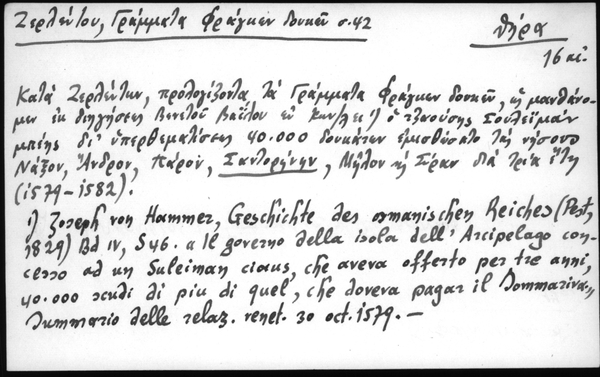 Ζερλέντου, Γράμματα Φράγκων Δουκῶν σ. 42
Θήρα
16 αἰ.
Κατά Ζερλέντην, προλογίζοντα τά Γράμματα Φράγκων δουκῶν, ὡς μανθάνο-
μεν ἐκ διηγήσεως Βενετοῦ Βαΐλου ἐν Κων/λει 1) ὁ τζαούσης Σουλεϊμάν
μπέης δι' ὑπερθεματίσεως 40.000 δουκάτων ἐμισθώσατο τάς νήσους
Νάξον, Ἄνδρον, Πάρον, Σαντορήνην, Μῆλον καί Σύραν διά τρία ἔτη
(1579-1582).
1) Joseph von Hammer, Geschichte des osmanischen Reiches (Pest,
1829) Bd IV, S 46. a Il governo della isola dell' Arcipelago con-
cesso ad un Suleiman ciaus, che aveva offerto per tre anni,
40.000 scudi di piu di quel, che doveva pagar il
Summario delle relaz. venet. 30 oct. 1579. —